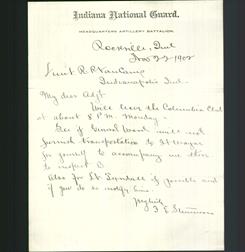 Indiana National Guard.
HEADQUARTERS ARTILLERY BATTALION.
Rockville, Ind
Nov 22 1902
Lieut R. P. VanCamp
Indianapolis Ind.
My dear Adjt
Will leave the Columbia Club
at about 8 P.M. Monday.
See if General Ward will not
furnish transportation to Ft Wayne
for yourself to accompany me there
to inspect
Also for Lt Tyndall if possible and
if you do so notify him.